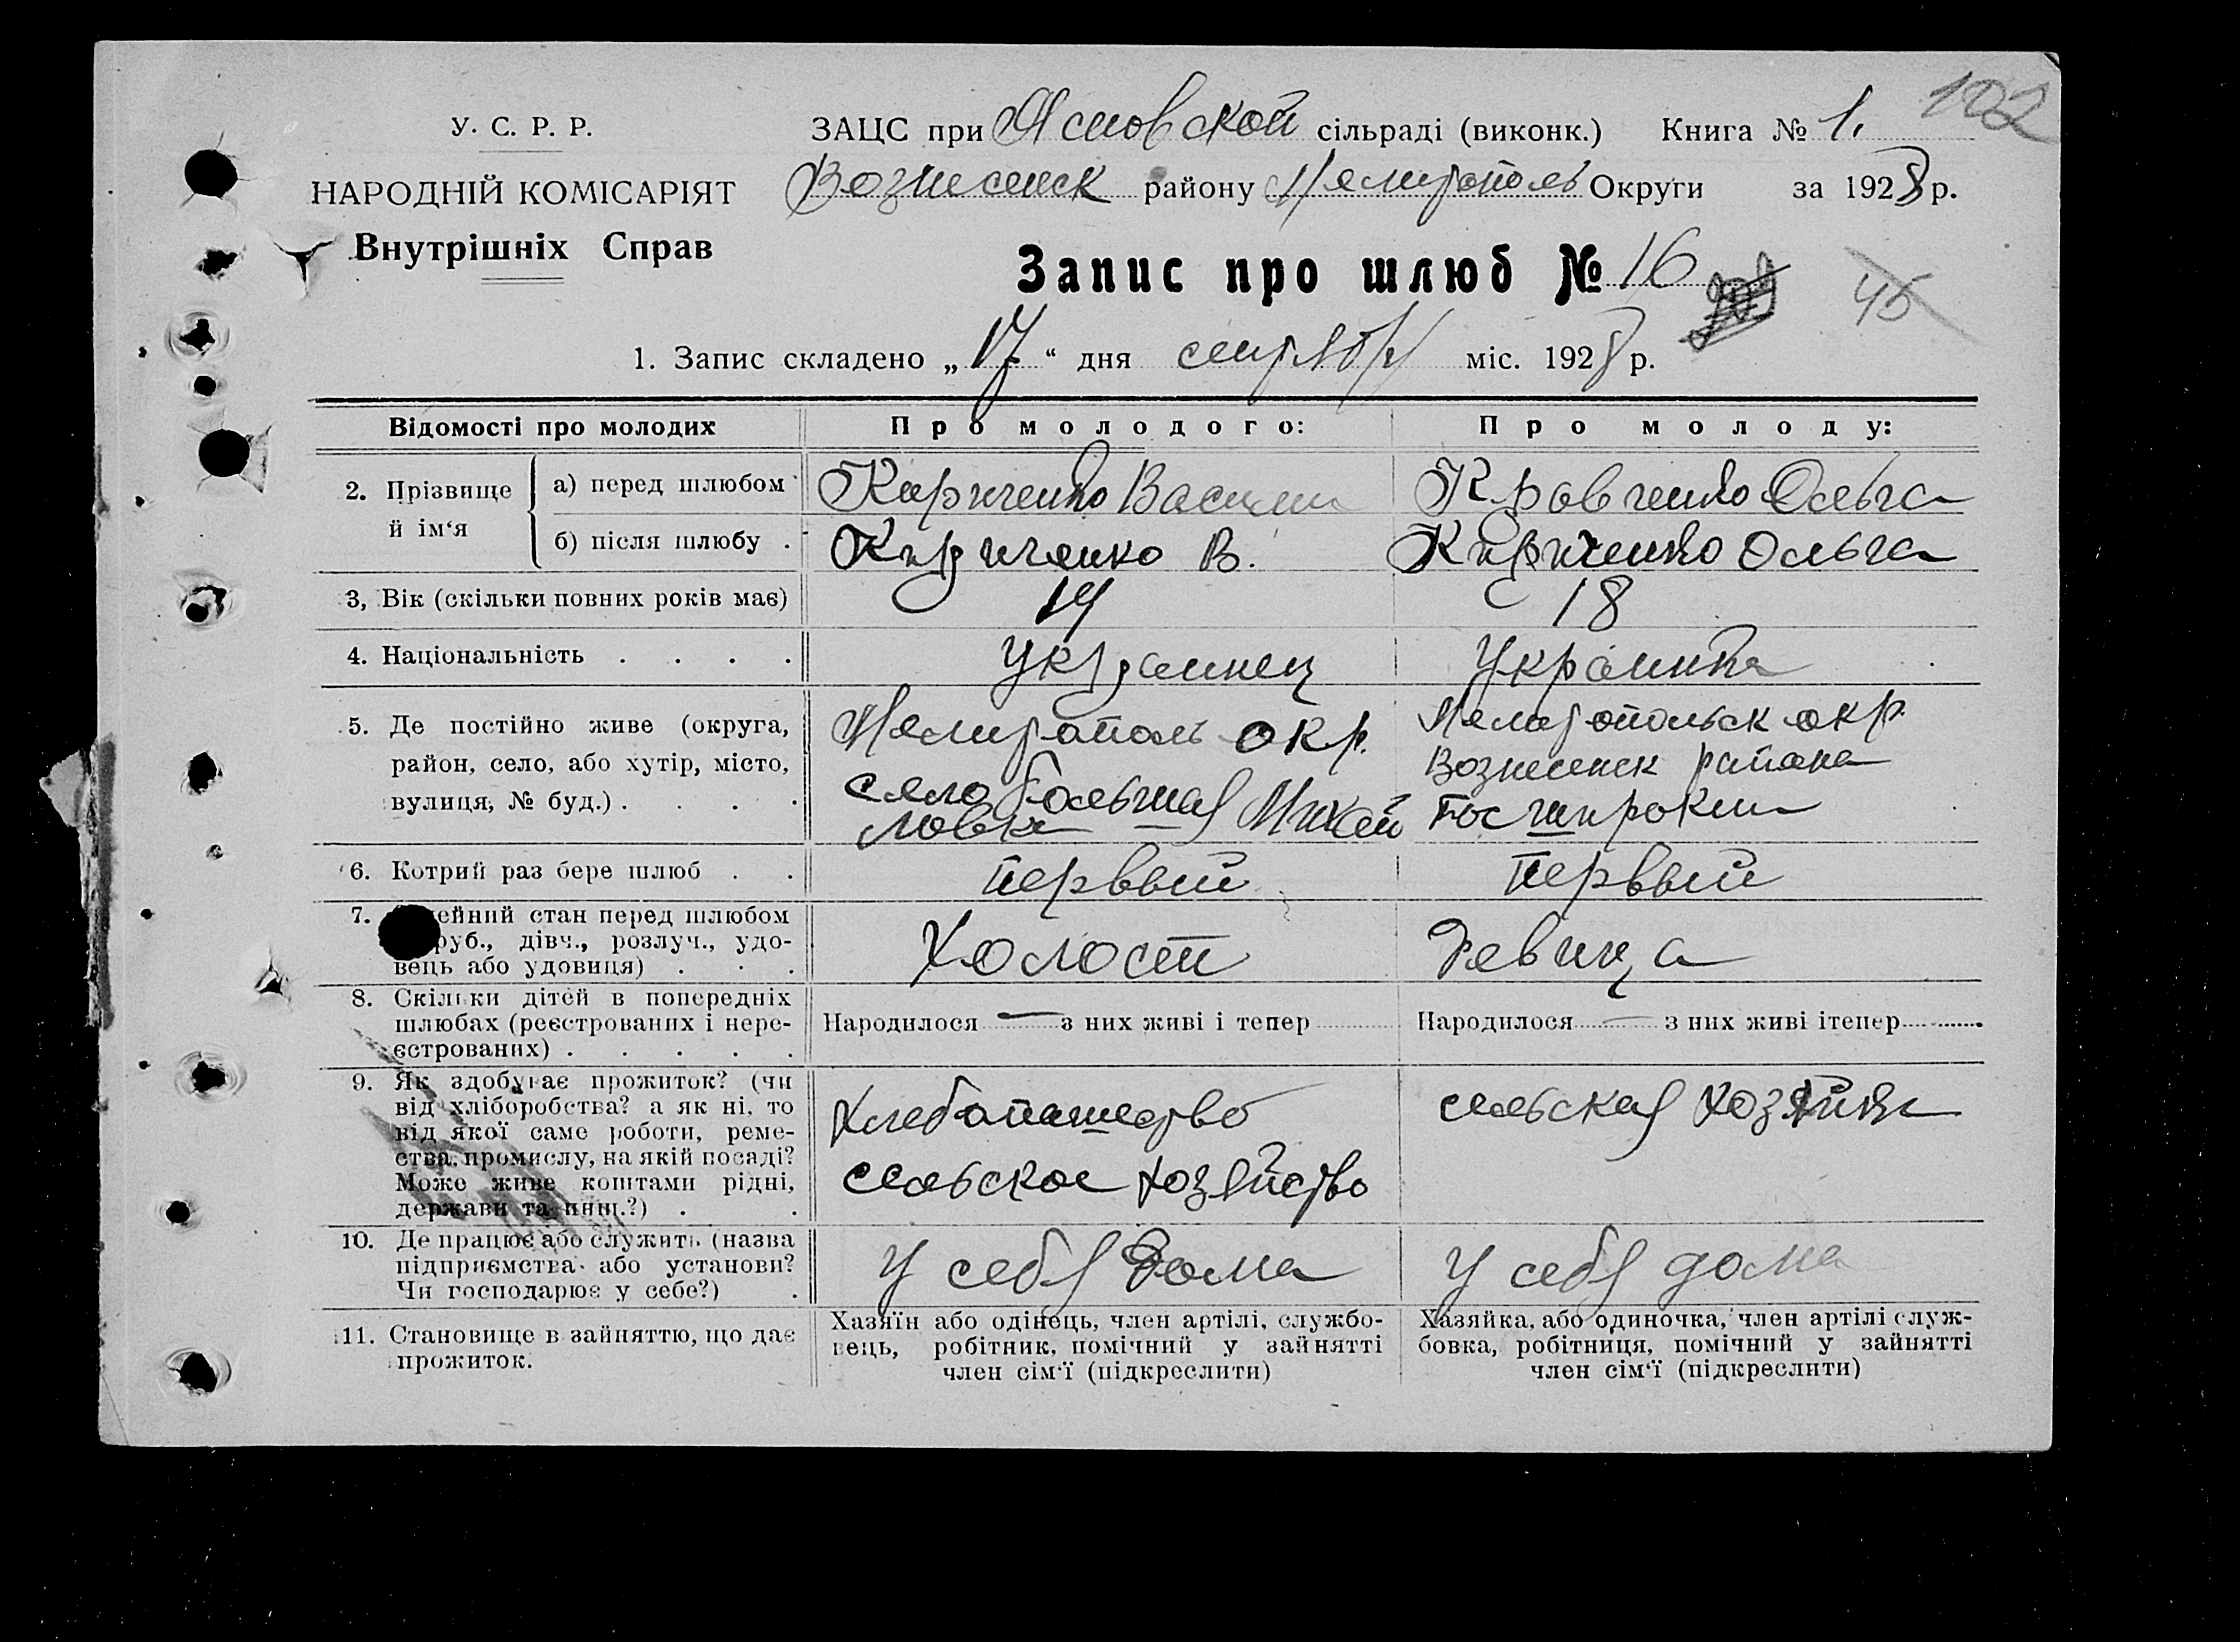 102
У. С. Р. Р.
НАРОДНІЙ КОМІСАРІЯТ
Внутрішніх Справ
ЗАЦС при Ясновской сільраді (виконк.) Книга № 1.
Вознесенск району Мелитополь Округи за 1928 р.
Запис про шлюб № 16
45
1. Запис складено „17“ дня сентября міс. 1928 р.
Відомості про молодих Про молодого: Про молоду:
2. Прізвище й ім‘я
а) перед шлюбом Кириченко Василий Кравченко Ольга
б) після шлюбу . Кириченко В. Кириченко Ольга
3, Вік (скільки повних років має) 19 18
4. Національність . . . . Украинец Украинка
5. Де постійно живе (округа,
район, село, або хутір, місто,
вулиця, № буд.) . . . .
Мелитополь окр.
село Большая Михай
ловка
Мелитопольск окр.
Вознесенск района
6. Котрий раз бере шлюб . . первый первый
7. ейний стан перед шлюбом
руб., дівч., розлуч., удо-
вець або удовиця) . . .
Холост Девица
8. Скільки дітей в попередніх
шлюбах (реєстрованих і нере-
єстрованих) . . . . .
Народилося — з них живі і тепер
Народилося — з них живі ітепер
9. Як здобуває прожиток? (чи
від хліборобства? а як ні, то
від якої саме роботи, реме-
ства, промислу, на якій посаді?
Може живе коштами рідні,
держави та инш.?) . .
Хлебопашество
сельское хозяйство
сельская хозяйка
10. Де працює або служить (назва
підприємства або установи?
Чи господарює у себе?) .
У себя дома У себя дома
11. Становище в зайняттю, що дає
прожиток.
Хазяїн або одінець, член артілі, службо-
вець, робітник, помічний у зайнятті
член сім‘ї (підкреслити)
Хазяйка, або одиночка, член артілі служ-
бовка, робітниця, помічний у зайнятті
член сім‘ї (підкреслити)